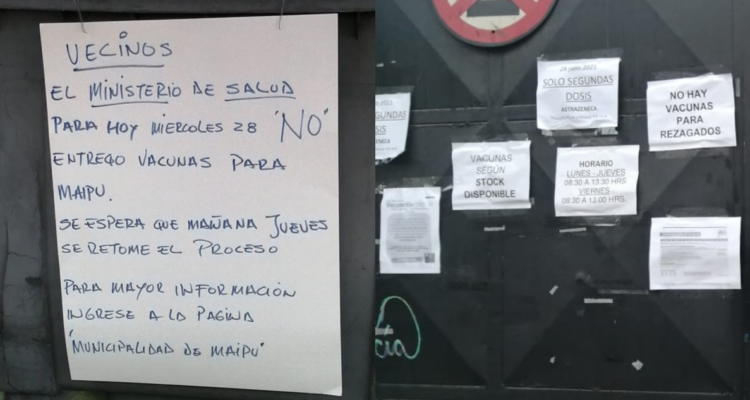 VECINOS
EL MINISTERIO DE SALUD
PARA HOY MIERCOLES 28 "NO"
ENTREGO VACUNAS PARA
MAIPU.
SE ESPERA QUE MAÑANA JUEVES
SE RETOME EL PROCESO
PARA MAYOR INFORMACIÓN
INGRESE A LA PAGINA
"MUNICIPALIDAD DE MAIPU"
28 julio 2021
SOLO SEGUNDAS
DOSIS
ASTRAZENECA
NO HAY
VACUNAS
PARA
REZAGADOS
VACUNAS
SEGÚN
STOCK
DISPONIBLE
HORARIO
LUNES - JUEVES
08:30 A 13:30 HRS
VIERNES
08:30 A 13:00 HRS.